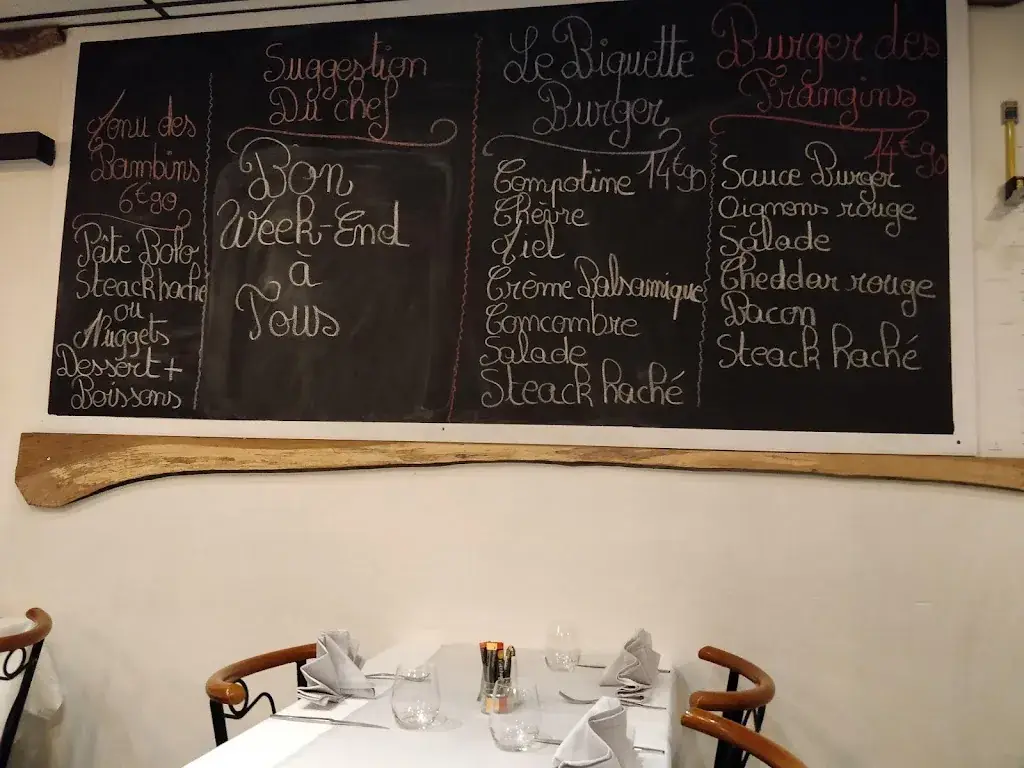 Menu des
Bambins
6€90
Pâte Bolo
Steack haché
ou
Nuggets
Dessert +
Boissons
Suggestion
Du chef
Bon
Week-End
à
Tous
Le Biquette
Burger
14€90
Compotine
Chèvre
Miel
Crème Balsamique
Comcombre
Salade
Steack haché
Burger des
Frangins
14€90
Sauce Burger
Oignons rouge
Salade
Cheddar rouge
Bacon
Steack haché